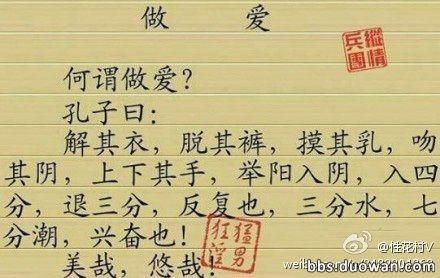 做 爱
何谓做爱?
孔子曰:
解其衣,脱其裤,摸其乳,吻
其阴,上下其手,举阳入阴,入四
分,退三分,反复也,三分水,七
分潮,兴奋也!
美哉,悠哉!
纵情
兵团
猛男
狂淫
@性花村V
bbs.duowan.com